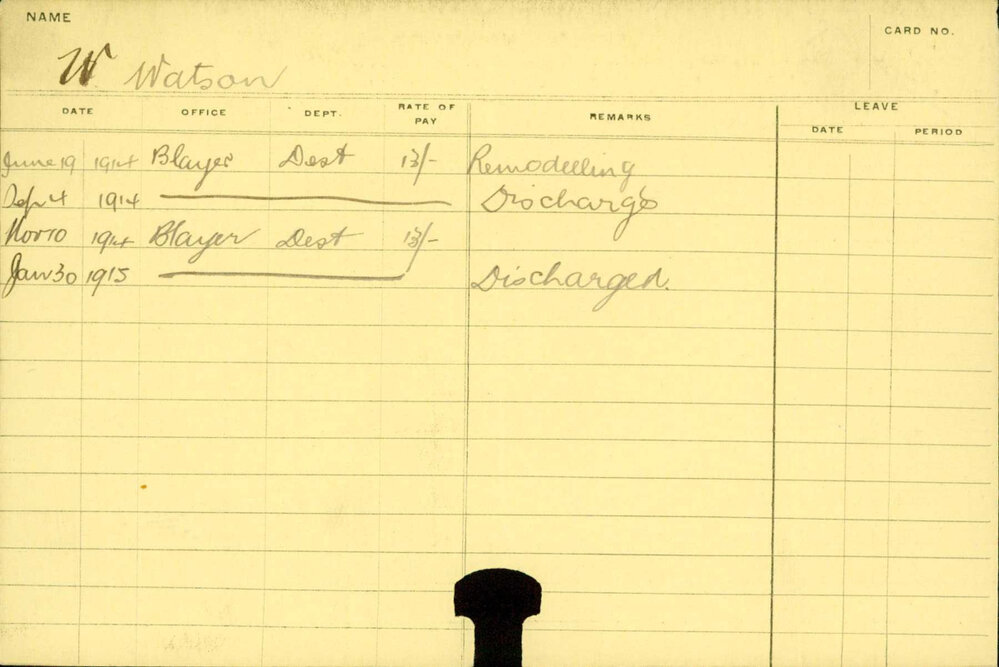 NAME
CARD NO.
W Watson
DATE OFFICE DEPT. RATE OF PAY REMARKS LEAVE
DATE PERIOD
June 19 1914 Blayer Dest 13/- Remodelling
Sep 4 1914 Discharge
Nov 10 1914 Blayer Dest 13/-
Jan 30 1915 Discharged.